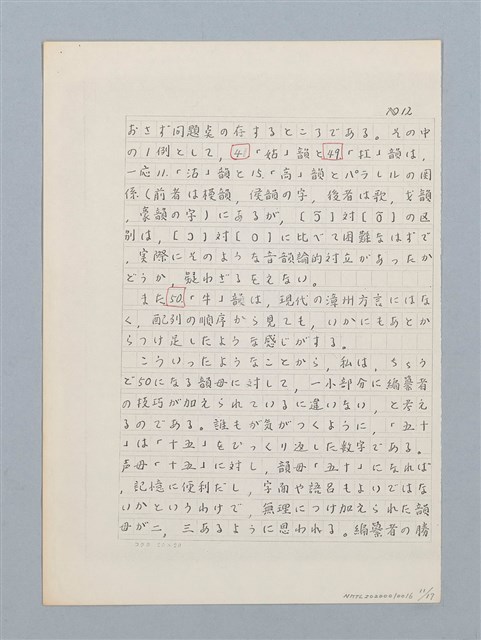 P012
おさず問題点の存するところである。その中
の1例として,「姑」韻と49「扛」韻は,
一応11.「沽」韻と15.「高」韻とパラレルの関
係(前者は模韻,侯韻の字,後者は歌,戈韻
,豪韻の字)にあるが,〔ɔ̃〕対〔õ〕の区
別は,〔ɔ〕対〔o〕に比べて困難なはずで
,実際にそのような音韻論的対立があったか
どうか,疑わざるをえない。
また50.「牛」韻は,現代の漳州方言にはな
く,配列の順序から見ても,いかにもあとか
らつけ足したような感じがする。
こういったようなことから,私は,ちょう
ど50になる韻母に対して,一小部分に編纂者
の技巧が加えられているに違いない,と考え
るのである。誰もが気がつくように,「五十」
は「十五」をひっくり返した数字である。
声母「十五」に対し,韻母「五十」になれば
,記憶に便利だし,字面や語呂もよいではな
いかというわけで,無理につけ加えられた韻
母が二,三あるように思われる。編纂者の勝
コクヨ 20×20
NMTL20200010016 11/17